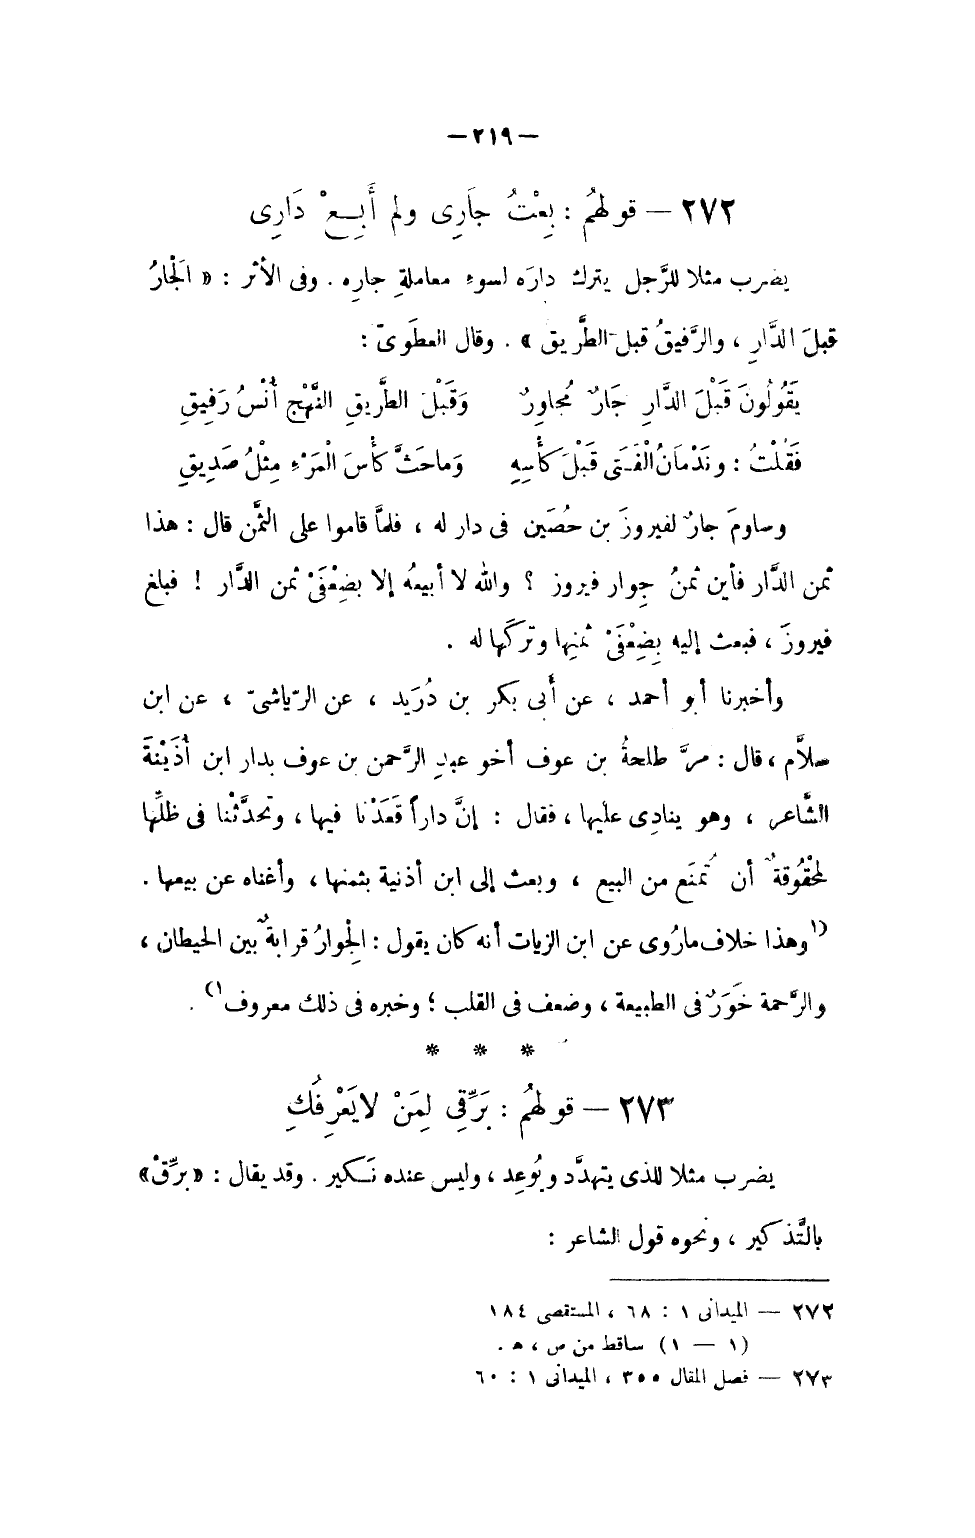 — ٢١٩ —
٢٧٢ — قولهُم : بِعْتُ جارِى ولم أَبِعْ دَارِى
يضرب مثلا للرَّجل يترك دارَه لسوء معاملةِ جاره . وفى الأثر : « الَجْارُ
قبلَ الدَّارِ ، والرَّفيقُ قبل الطَّريق » . وقال العطَوىّ :
يَقُولُونَ قَبْلَ الدَّارِ جَارٌ مُجاوِرٌ وَقَبْلَ الطَّريقِ النَّهْجِ أُنْسُ رَفِيقِ
فَقُلْتُ : ونَدْمَانُ الْفَتَى قَبْلَ كَأْسِهِ وَماحَثَّ كأْسَ المَرْءِ مِثْلُ صَدِيقِ
وساومَ جارٌ لفيروزَ بن حُصَين فى دار له ، فلمَّا قاموا على الثَّمن قال : هذا
ثمن الدَّار فأين ثمنُ جِوار فيروز ؟ والله لا أبيعُه إلا بضِعْفَىْ ثمن الدَّار ! فبلغ
فيروزَ ، فبعث إليه بِضِعْفَىْ ثمنِها وترَكَها له .
وأخبرنا أبو أحمد ، عن أَبى بكر بن دُرَيد ، عن الرّياشىّ ، عن ابن
سلاَّم ، قال : مرَّ طلحةُ بن عوف أخو عبدِ الرَّحمن بن عوف بدار ابن أُذَيْنَةَ
الشَّاعر ، وهو ينادِى عليها ، فقال : إنَّ داراً قَعَدْنا فيها ، وتحدَّثْنا فى ظلِّها
لمَحْقُوقةٌ أن تُمنَع من البيع ، وبعث إلى ابن أذنية بثمنها ، وأغناه عن بيعها .
(١وهذا خلاف مارُوى عن ابن الزيات أنه كان يقول : الْجِوارُ قرابةٌ بين الحيطان ،
والرَّحمة خَوَرٌ فى الطبيعة ، وضعف فى القلب ؛ وخبره فى ذلك معروف١) .
* * *
٢٧٣ — قولهُم : بَرِّقِى لِمَنْ لا يَعْرِفُكِ
يضرب مثلا للذى يتهدَّد ويُوعِد ، وليس عنده نَكير . وقد يقال : « برِّقْ »
بالتَّذكير ، ونحوه قول الشاعر :
٢٧٢ — الميدانى ١ : ٦٨ ، المستقصى ١٨٤
(١ — ١) ساقط من ص ، ه .
٢٧٣ — فصل المقال ٣٥٥ ، الميدانى ١ : ٦٠